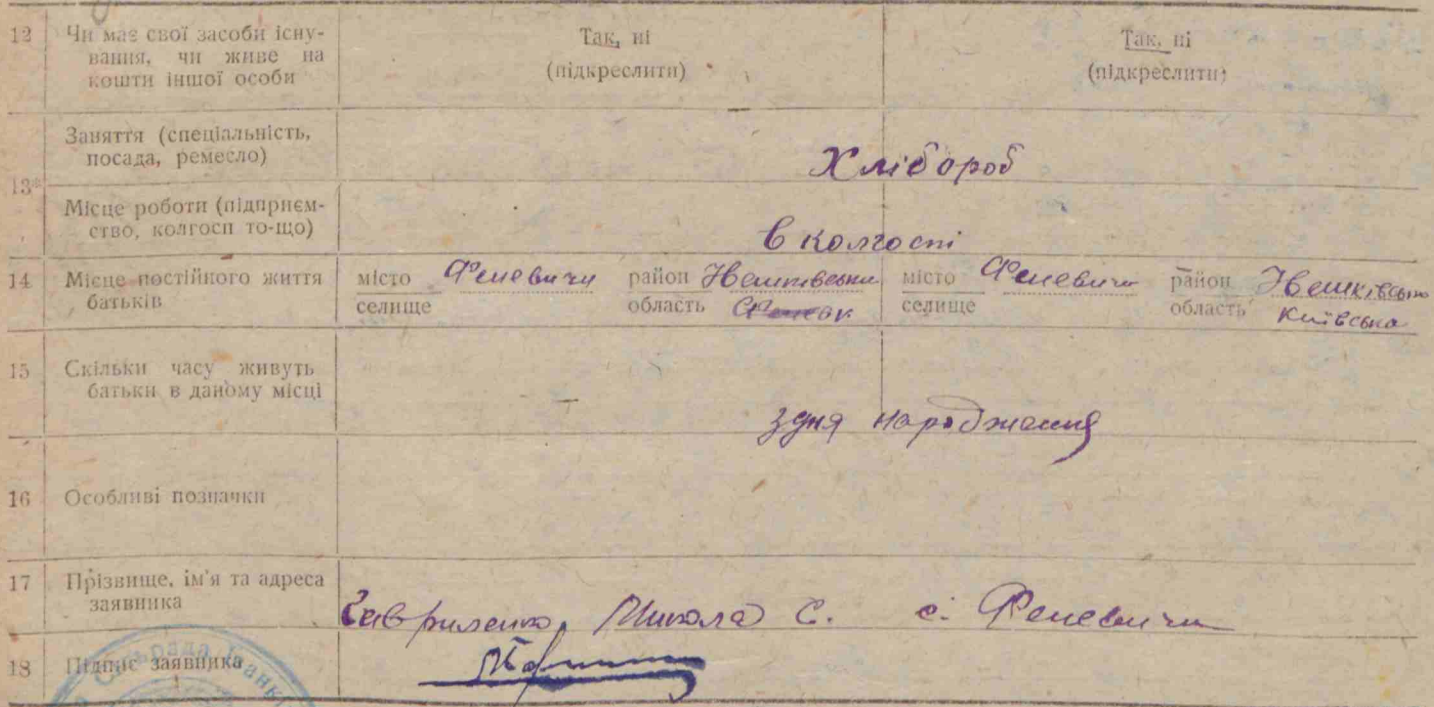 12 Чи має свої засоби існу-
вання, чи живе на
кошти іншої особи
Так, ні
(підкреслити)
Так, ні
(підкреслити)
13*
Заняття (спеціальність,
посада, ремесло)
Хлібороб
Місце роботи (підприєм-
ство, колгосп то-що)
в колгоспі
14 Місце постійного життя
батьків
місто Феневичи район
селище область
місто Феневичи район
селище область Київська
15 Скільки часу живуть
батьки в даному місці
з дня народження
16 Особливі позначки
17 Прізвище, ім'я та адреса
заявника
Гавриленко Микола С. с. Феневичи
18 Підпис заявника